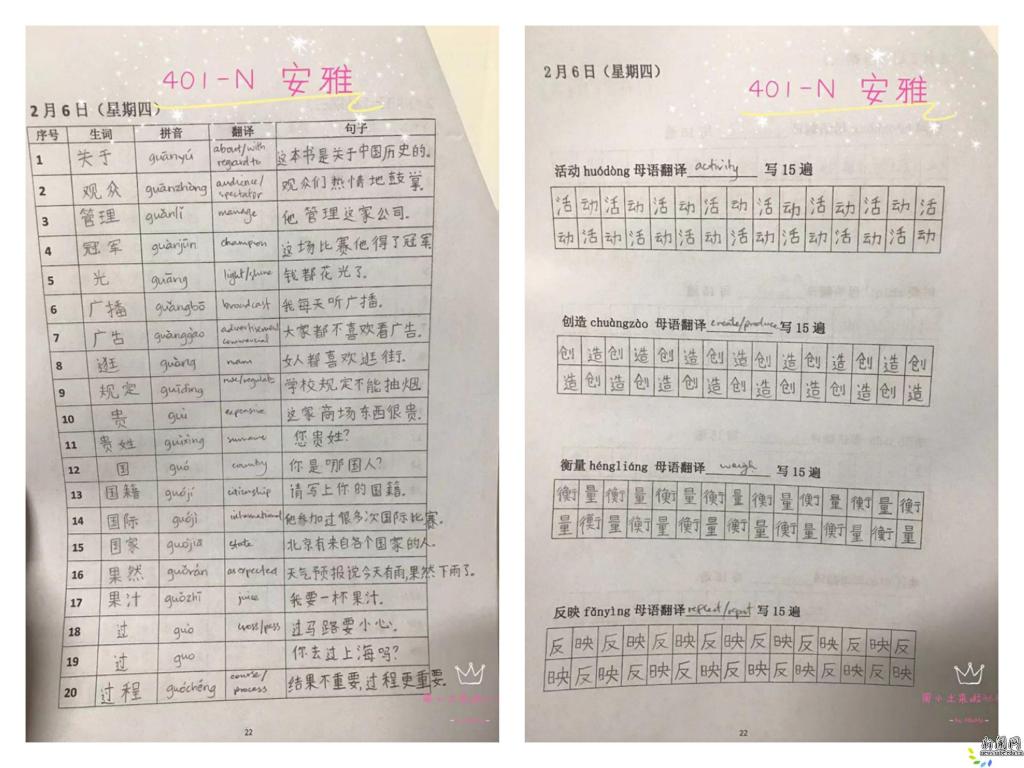 401-N 安雅
2月6日（星期四）
序号 生词 拼音 翻译 句子
1 关于 guānyú about/with regard to 这本书是关于中国历史的。
2 观众 guānzhòng audience/spectator 观众们热情地鼓掌。
3 管理 guǎnlǐ manage 他管理这家公司。
4 冠军 guànjūn champion 这场比赛他得了冠军
5 光 guāng light/shine 钱都花光了。
6 广播 guǎngbō broadcast 我每天听广播。
7 广告 guǎnggào advertisement commercial 大家都不喜欢看广告。
8 逛 guàng 女人都喜欢逛街。
9 规定 guīdìng rule/regulate 学校规定不能抽烟
10 贵 guì expensive 这家商场东西很贵。
11 贵姓 guìxìng surname 您贵姓？
12 国 guó country 你是哪国人？
13 国籍 guójí citizenship 请写上你的国籍。
14 国际 guójì international 他参加过很多次国际比赛。
15 国家 guójiā state 北京有来自各个国家的人。
16 果然 guǒrán as expected 天气预报说今天有雨,果然下雨了。
17 果汁 guǒzhī juice 我要一杯果汁。
18 过 guò cross/pass 过马路要小心。
19 过 guo 你去过上海吗？
20 过程 guòchéng course/process 结果不重要,过程更重要
22
2月6日（星期四）
401-N 安雅
活动 huódòng 母语翻译 activity 写 15 遍
活动活动活动活动活动活动活动活
动活动活动活动活动活动活动活动
创造 chuàngzào 母语翻译 create/produce 写 15 遍
创造创造创造创造创造创造创造创
造创造创造创造创造创造创造创造
衡量 héngliáng 母语翻译 weigh 写 15 遍
衡量衡量衡量衡量衡量衡量衡量衡
量衡量衡量衡量衡量衡量衡量衡量
反映 fǎnyìng 母语翻译 reflect/report 写 15 遍
反映反映反映反映反映反映反映反
映反映反映反映反映反映反映反映
22
新闻网